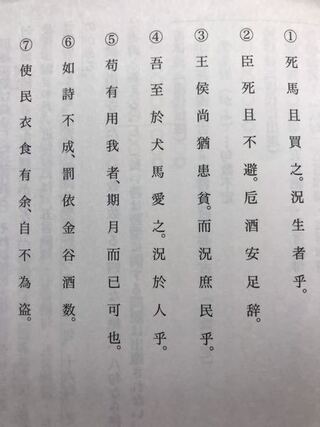 ①死馬且買之。況生者乎。
②臣死且不避。卮酒安足辞。
③王侯尚猶患貧。而況庶民乎。
④吾至於犬馬愛之。況於人乎。
⑤苟有用我者、期月而已可也。
⑥如詩不成、罰依金谷酒数。
⑦使民衣食有余、自不為盗。